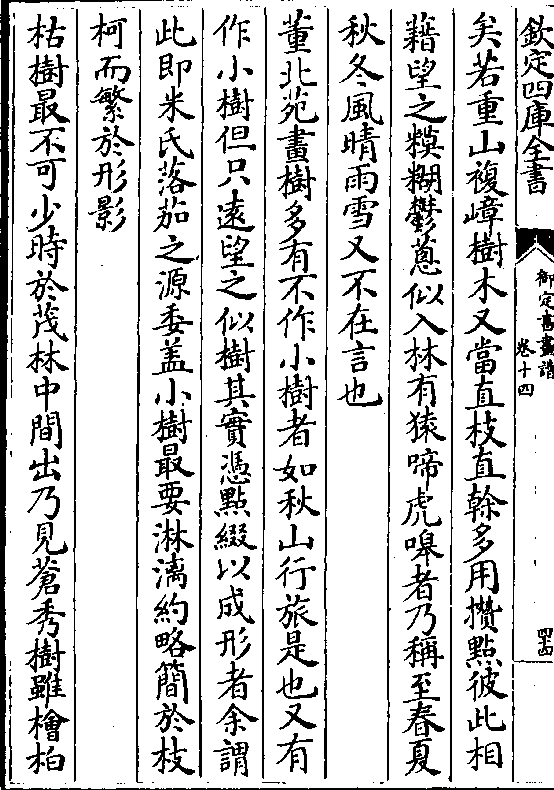 欽定四庫全書
御定書畫譜
卷十四
四十四
矣若重山複嶂樹木又當直枝直榦多用攢點彼此相
藉望之糢糊鬱蔥似入林有猿啼虎嘷者乃稱至春夏
秋冬風晴雨雪又不在言也
董北苑畫樹多有不作小樹者如秋山行旅是也又有
作小樹但只逺望之似樹其實憑點綴以成形者余謂
此即米氏落茄之源委盖小樹最要淋漓約略簡於枝
柯而繁於形影
枯樹最不可少時於茂林中間出乃見蒼秀樹雖檜柏